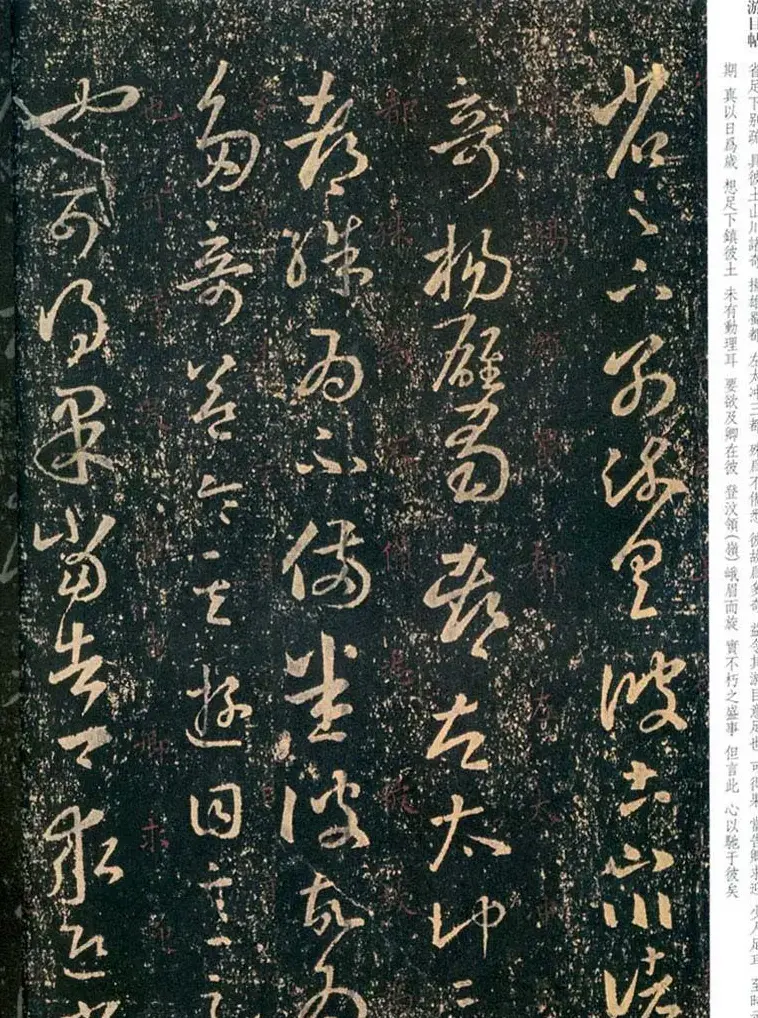 省足下別疏具彼土山川諸
奇揚雄蜀都左太沖三
都殊爲不備悉彼故爲
多奇益令其遊目意足
也可得果當告卿求迎少
游目帖
省足下別疏 具彼土山川諸奇 揚雄蜀都 左太沖三都 殊爲不備悉 彼故爲多奇 益令其游目意足也 可得果 當告卿求迎 少人足耳 至時示
期 真以日爲歲 想足下鎮彼土 未有動理耳 要欲及卿在彼 登汶領(嶺)峨眉而旋 實不朽之盛事 但言此 心以馳于彼矣